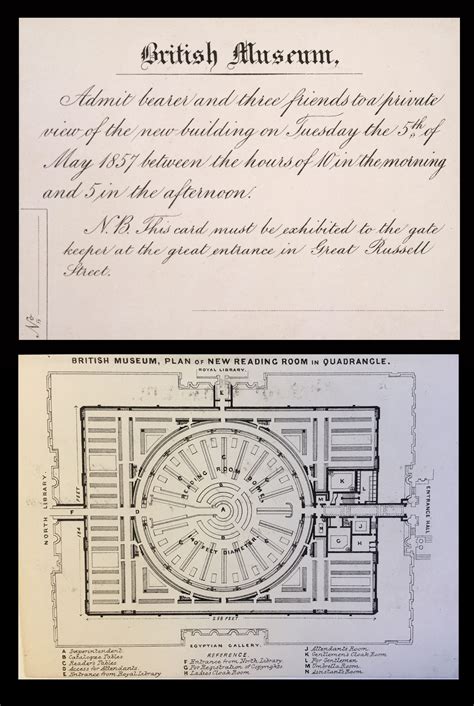 British Museum.
Admit bearer and three friends to a private
view of the new building on Tuesday the 5th of
May 1857 between the hours of 10, in the morning
and 5, in the afternoon.
N.B. This card must be exhibited to the gate
keeper at the great entrance in Great Russell
Street.
No
BRITISH MUSEUM, PLAN OF NEW READING ROOM IN QUADRANGLE.
ROYAL LIBRARY.
E
C
C
K
READING ROOM DOME.
NORTH LIBRARY.
184 FEET
F
D
A
ENTRANCE HALL
140 FEET DIAMETER.
G
H
258 FEET
EGYPTIAN GALLERY.
REFERENCE.
A Superintendent.
B Catalogue Tables
C Reader's Tables
D Access for Attendants.
E Entrance from Royal Library
F Entrance from North Library.
G For Registration of Copyrights
H Ladies Cloak Room
J Attendants Room
K Gentlemen's Cloak Room
L For Gentlemen
M Umbrella Room
N Assistants Room